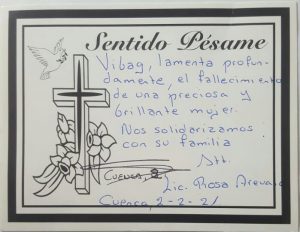 Sentido Pésame
Vibag, lamenta profun-
damente, el fallecimiento
de una preciosa y
brillante mujer.
Nos solidarizamos
con su familia
Att.
Lic. Rosa Arevalo
Cuenca, 2-2-21